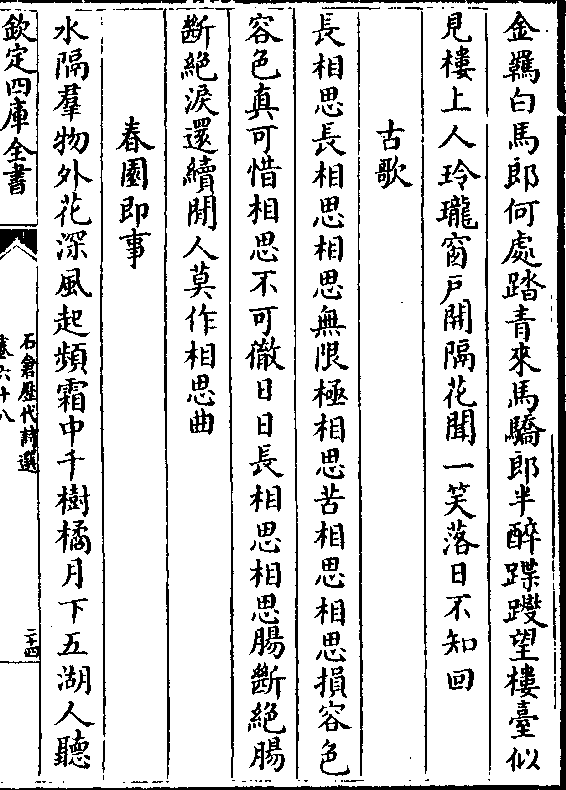 金羈白馬郎何處踏青來馬驕郎半醉蹀躞望樓臺似
見樓上人玲瓏窗戶開隔花聞一笑落日不知回
古歌
長相思長相思相思無限極相思苦相思相思損容色
容色真可惜相思不可徹日日長相思相思腸斷絕腸
斷絕淚還續閒人莫作相思曲
春園即事
水隔羣物外花深風起頻霜中千樹橘月下五湖人聽
欽定四庫全書
石倉歷代詩選
卷六十八
二十四